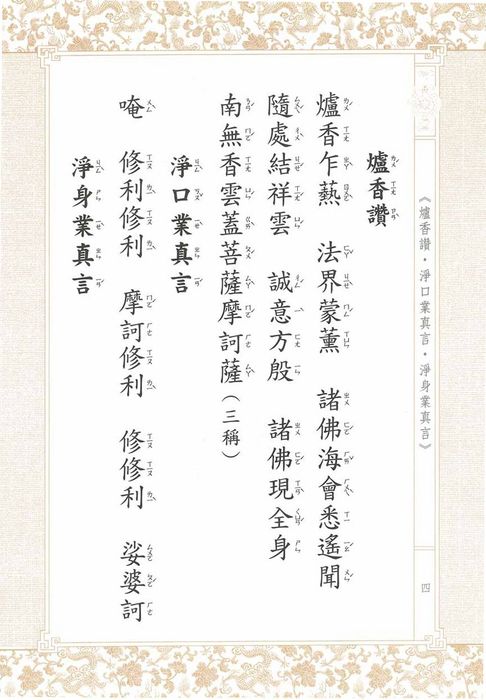 《爐香讚・淨口業真言・淨身業真言》
四
爐香讚
爐香乍爇　法界蒙薰　諸佛海會悉遙聞
隨處結祥雲　誠意方殷　諸佛現全身
南無香雲蓋菩薩摩訶薩（三稱）
淨口業真言
唵　修利修利　摩訶修利　修修利　娑婆訶
淨身業真言